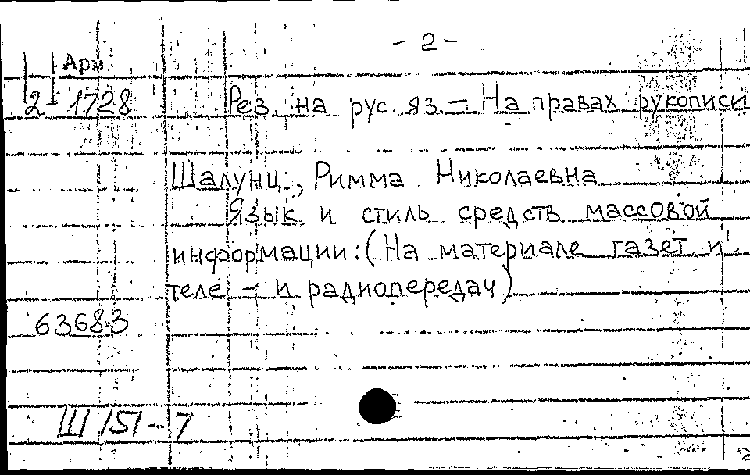 - 2 -
Арм
2-1728
Рез. на рус. яз. - На правах рукописи
Шалунц, Римма Николаевна
Язык и стиль средств массовой
информации: (На материале газет и
теле - и радиопередач)
63683
Ш 151-7